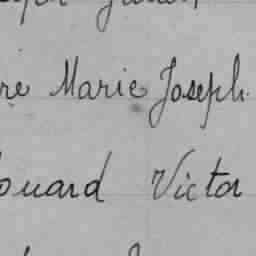 re Marie Joseph
ouard Victor